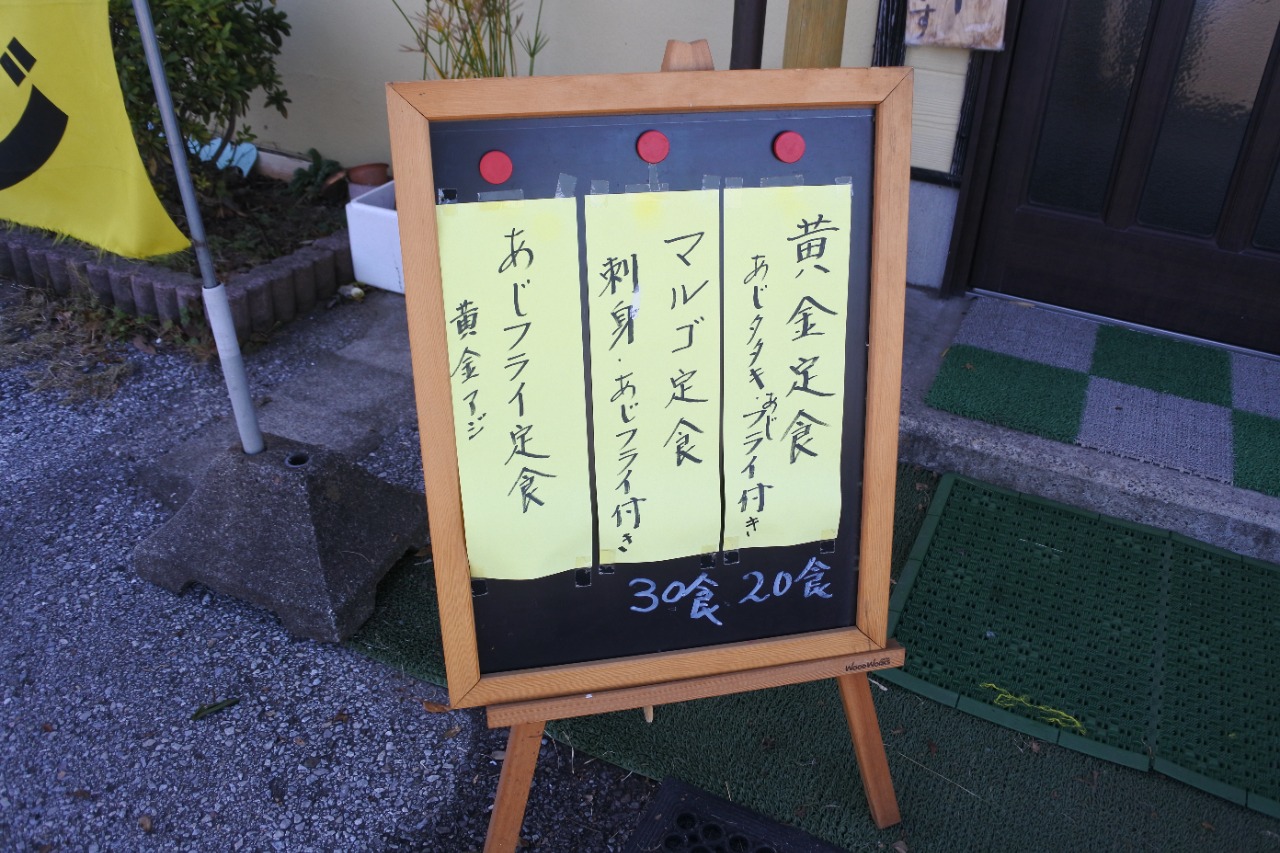 黄金定食
あじタタキ・あじフライ付き
20食
マルゴ定食
刺身・あじフライ付き
30食
あじフライ定食
黄金アジ
WoodWorks
じ
す